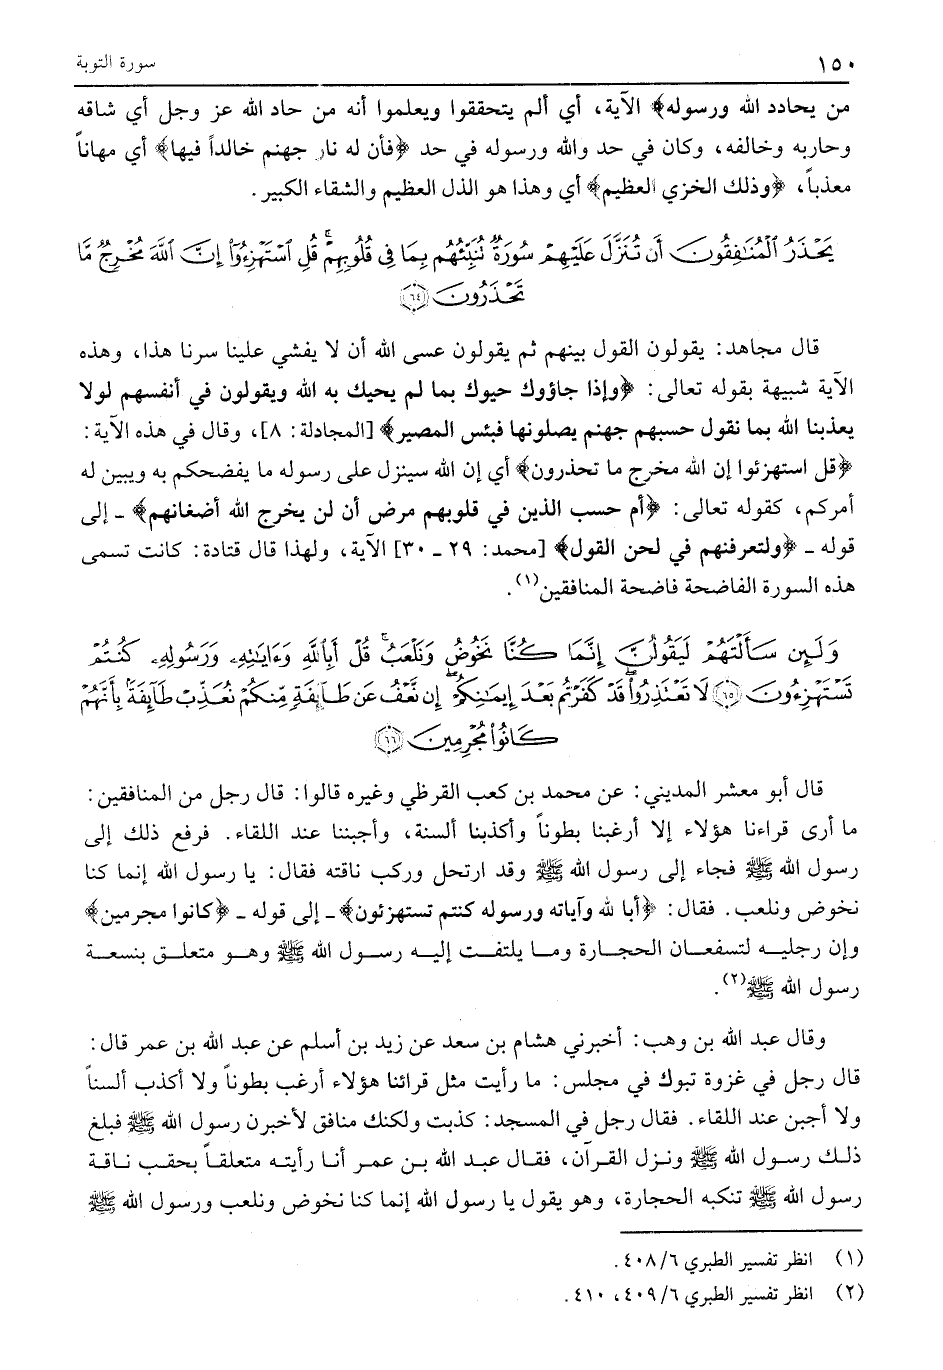 ١٥٠ سورة التوبة
من يحادد الله ورسوله﴾ الآية، أي ألم يتحققوا ويعلموا أنه من حاد الله عز وجل أي شاقه
وحاربه وخالفه، وكان في حد والله ورسوله في حد ﴿فأن له نار جهنم خالداً فيها﴾ أي مهاناً
معذباً، ﴿وذلك الخزي العظيم﴾ أي وهذا هو الذل العظيم والشقاء الكبير.
يَحْذَرُ ٱلْمُنَٰفِقُونَ أَن تُنَزَّلَ عَلَيْهِمْ سُورَةٌ تُنَبِّئُهُم بِمَا فِى قُلُوبِهِمْ ۚ قُلِ ٱسْتَهْزِءُوٓا۟ إِنَّ ٱللَّهَ مُخْرِجٌ مَّا
تَحْذَرُونَ ﴿٦٤﴾
قال مجاهد: يقولون القول بينهم ثم يقولون عسى الله أن لا يفشي علينا سرنا هذا، وهذه
الآية شبيهة بقوله تعالى: ﴿وإذا جاؤوك حيوك بما لم يحيك به الله ويقولون في أنفسهم لولا
يعذبنا الله بما نقول حسبهم جهنم يصلونها فبئس المصير﴾ [المجادلة: ٨]، وقال في هذه الآية:
﴿قل استهزئوا إن الله مخرج ما تحذرون﴾ أي إن الله سينزل على رسوله ما يفضحكم به ويبين له
أمركم، كقوله تعالى: ﴿أم حسب الذين في قلوبهم مرض أن لن يخرج الله أضغانهم﴾ ـ إلى
قوله ـ ﴿ولتعرفنهم في لحن القول﴾ [محمد: ٢٩ ـ ٣٠] الآية، ولهذا قال قتادة: كانت تسمى
هذه السورة الفاضحة فاضحة المنافقين(١).
وَلَئِن سَأَلْتَهُمْ لَيَقُولُنَّ إِنَّمَا كُنَّا نَخُوضُ وَنَلْعَبُ ۚ قُلْ أَبِٱللَّهِ وَءَايَٰتِهِۦ وَرَسُولِهِۦ كُنتُمْ
تَسْتَهْزِءُونَ ﴿٦٥﴾ لَا تَعْتَذِرُوا۟ قَدْ كَفَرْتُم بَعْدَ إِيمَٰنِكُمْ ۚ إِن نَّعْفُ عَن طَآئِفَةٍ مِّنكُمْ نُعَذِّبْ طَآئِفَةًۢ بِأَنَّهُمْ
كَانُوا۟ مُجْرِمِينَ ﴿٦٦﴾
قال أبو معشر المديني: عن محمد بن كعب القرظي وغيره قالوا: قال رجل من المنافقين:
ما أرى قراءنا هؤلاء إلا أرغبنا بطوناً وأكذبنا ألسنة، وأجبننا عند اللقاء. فرفع ذلك إلى
رسول الله ﷺ فجاء إلى رسول الله ﷺ وقد ارتحل وركب ناقته فقال: يا رسول الله إنما كنا
نخوض ونلعب. فقال: ﴿أبا لله وآياته ورسوله كنتم تستهزئون﴾ـ إلى قوله ـ ﴿كانوا مجرمين﴾
وإن رجليه لتسفعان الحجارة وما يلتفت إليه رسول الله ﷺ وهو متعلق بنسعة
رسول الله ﷺ(٢).
وقال عبد الله بن وهب: أخبرني هشام بن سعد عن زيد بن أسلم عن عبد الله بن عمر قال:
قال رجل في غزوة تبوك في مجلس: ما رأيت مثل قرائنا هؤلاء أرغب بطوناً ولا أكذب ألسناً
ولا أجبن عند اللقاء. فقال رجل في المسجد: كذبت ولكنك منافق لأخبرن رسول الله ﷺ فبلغ
ذلك رسول الله ﷺ ونزل القرآن، فقال عبد الله بن عمر أنا رأيته متعلقاً بحقب ناقة
رسول الله ﷺ تنكبه الحجارة، وهو يقول يا رسول الله إنما كنا نخوض ونلعب ورسول الله ﷺ
(١) انظر تفسير الطبري ٤٠٨/٦.
(٢) انظر تفسير الطبري ٤٠٩/٦، ٤١٠.